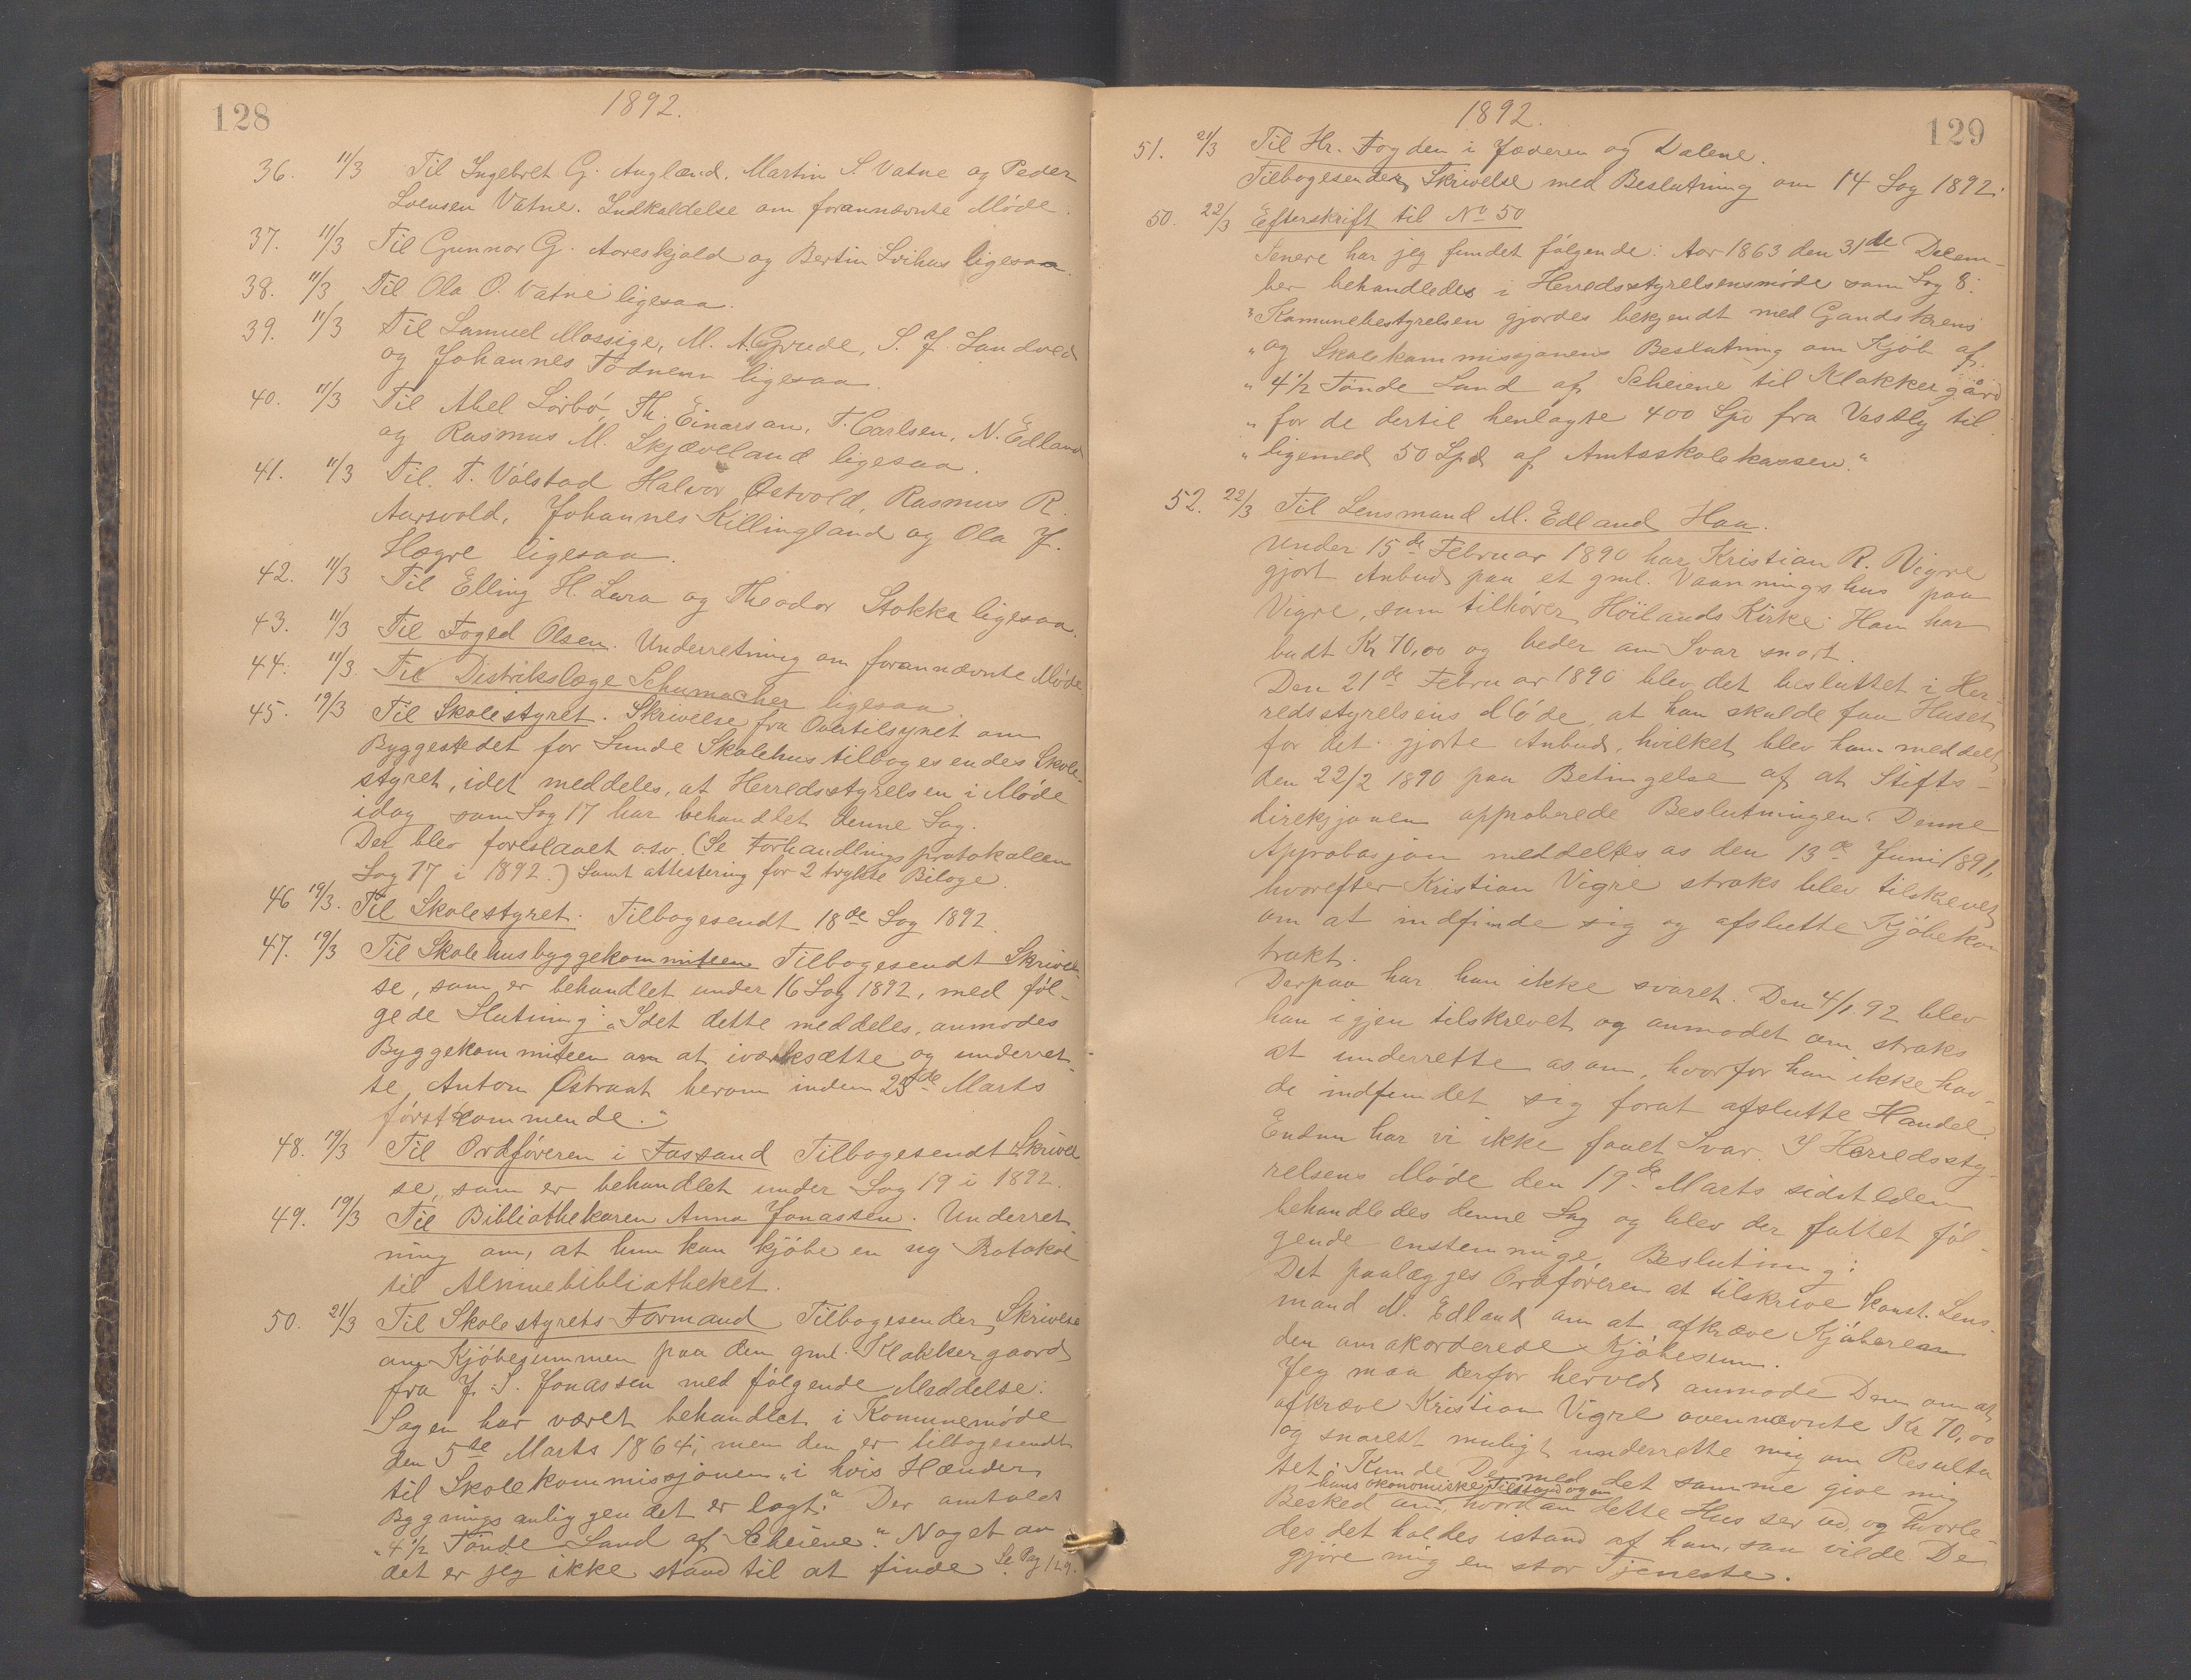 128
1892.
36. 11/3 Til Ingebret G. Augland. Martin S. Vatne og Peder
Svensen Vatne. Indkaldelse om forannævnte Møde.
37. 11/3 Til Gunnar G. Aareskjold og Bertin Svihus ligesaa.
38. 11/3 Til Ola O. Vatne ligesaa.
39. 11/3 Til Samuel Mossige, M. A. Grude, S. J. Sandved
og Johannes Tødnem ligesaa.
40. 11/3 Til Abel Sørbø, Th. Einarsan, T. Carlsen, N. Edland
og Rasmus M. Skjæveland ligesaa.
41. 11/3 Til T. Vølstad Halvor Østvold, Rasmus R.
Aarsvold, Johannes Killingland og Ola J.
Hogre ligesaa.
42. 11/3 Til Elling H. Lura og Theodor Stokka ligesaa.
43. 11/3 Til Foged Olsen. Underretning om forannævnte Møde
44. 11/3. Til Distrikslæge Schumacher ligesaa
45. 19/3 Til Skolestyret. Skrivelse fra Overtilsynet om
Byggestedet for Sunde Skolehus tilbagesendes Skole-
styret, idet meddeles, at Herredsstyrelsen i Møde
idag som Sag 17 har behandlet denne Sag.
Der blev foreslaaet osv. (Se Forhandlingsprotokollen
Sag 17 i 1892.) Samt attestering for 2 trykte Bilage.
46 19/3. Til Skolestyret. Tilbagesendt 18de Sag 1892.
47. 19/3 Til Skolehusbyggekommiteen Tilbagesendt Skrivel-
se, som er behandlet under 16 Sag 1892, med føl-
gede Slutning: „Idet dette meddeles, anmodes
Byggekommiteen om at iværksætte og underret-
te Anton Østraat herom inden 25de Marts
førstkommende.“
48. 19/3 Til Ordføreren i Fossand Tilbagesendt Skrivel
se, som er behandlet under Sag 19 i 1892.
49. 19/3 Til Bibliothekaren Anna Jonassen. Underret
ning om, at hun kan kjøbe en ny Protokol
til Almuebibliotheket.
50. 21/3 Til Skolestyrets Formand Tilbagesender Skrivelse
om Kjøbesummen paa den gml. Klokkergaard
fra J. S. Jonassen med følgende Meddelse:
Sagen har været behandlet i Komunemøde
den 5te Marts 1864; men den er tilbagesendt
til Skolekommissjonen „i hvis Hænder
Bygningsanliggendet er lagt.“ Der omtales
„4½ Tønde Land af Scheiene“. Noget om
det er jeg ikke stand til at finde. Se Pag 129.
129
1892.
51. 21/3 Til Hr. Fogden i Jæderen og Dalene.
Tilbagesender Skrivelse med Beslutning om 14 Sag 1892.
50. 22/3 Efterskrift til No 50
Senere har jeg fundet følgende: Aar 1863 den 31de Decem-
ber behandledes i Herredsstyrelsensmøde som Sag 8:
„Komunebestyrelsen gjordes bekjendt med Gandskrens
„og Skolekommissjonens Beslutning om Kjøb af
„4½ Tønde Land af Scheiene til Klokkergård
„for de dertil henlagte 400 Spd fra Vestly til
„ligemed 50 Spd af Amtsskolekassen.“
52. 22/3 Til Lensmand M. Edland Haa.
Under 15de Februar 1890 har Kristian R. Vigre
gjort Anbud paa et gml. Vaanningshus paa
Vigre, som tilhører Høilands Kirke. Han har
budt Kr 70,00 og beder om Svar snart.
Den 21de Februar 1890 blev det besluttet i Her-
redsstyrelsens Møde, at han skulde faa Huset
for det gjorte Anbud, hvilket blev ham meddelt
den 22/2 1890 paa Betingelse af at Stifts-
direksjonen approberede Beslutningen. Denne
Approbasjon meddeltes os den 13de Juni 1891,
hvorefter Kristian Vigre straks blev tilskrevet
om at indfinde sig og afslutte Kjøbekon
trakt.
Derpaa har han ikke svaret. Den 4/1. 92 blev
han igjen tilskrevet og anmodet om straks
at underrette os om, hvorfor han ikke hav-
de indfundet sig forat afslutte Handel.
Endnu har vi ikke faaet Svar. I Herredssty-
relsens Møde den 19de Marts sidstleden
behandledes denne Sag og blev der fattet føl-
gende enstemmige Beslutning:
Det paalægges Ordføreren at tilskrive Konst. Lens-
mand M. Edland om at afkræve Kjøberen
den omakorderede Kjøbesum.
Jeg maa derfor herved anmode Dem om at
afkræve Kristian Vigre ovennævnte Kr 70,00
og snarest muligt underrette mig om Resulta
tet. Kunde De med det samme give mig
hans økonomiske Tilstand og om
Besked om, hvordan dette Hus ser ud, og hvorle-
des det holdes istand af ham, saa vilde De
gjøre mig en stor Tjeneste.